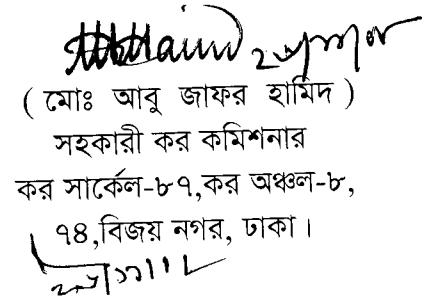 ( মোঃ আবু জাফর হামিদ )
সহকারী কর কমিশনার
কর সার্কেল-৮৭,কর অঞ্চল-৮,
৭৪,বিজয় নগর, ঢাকা ।